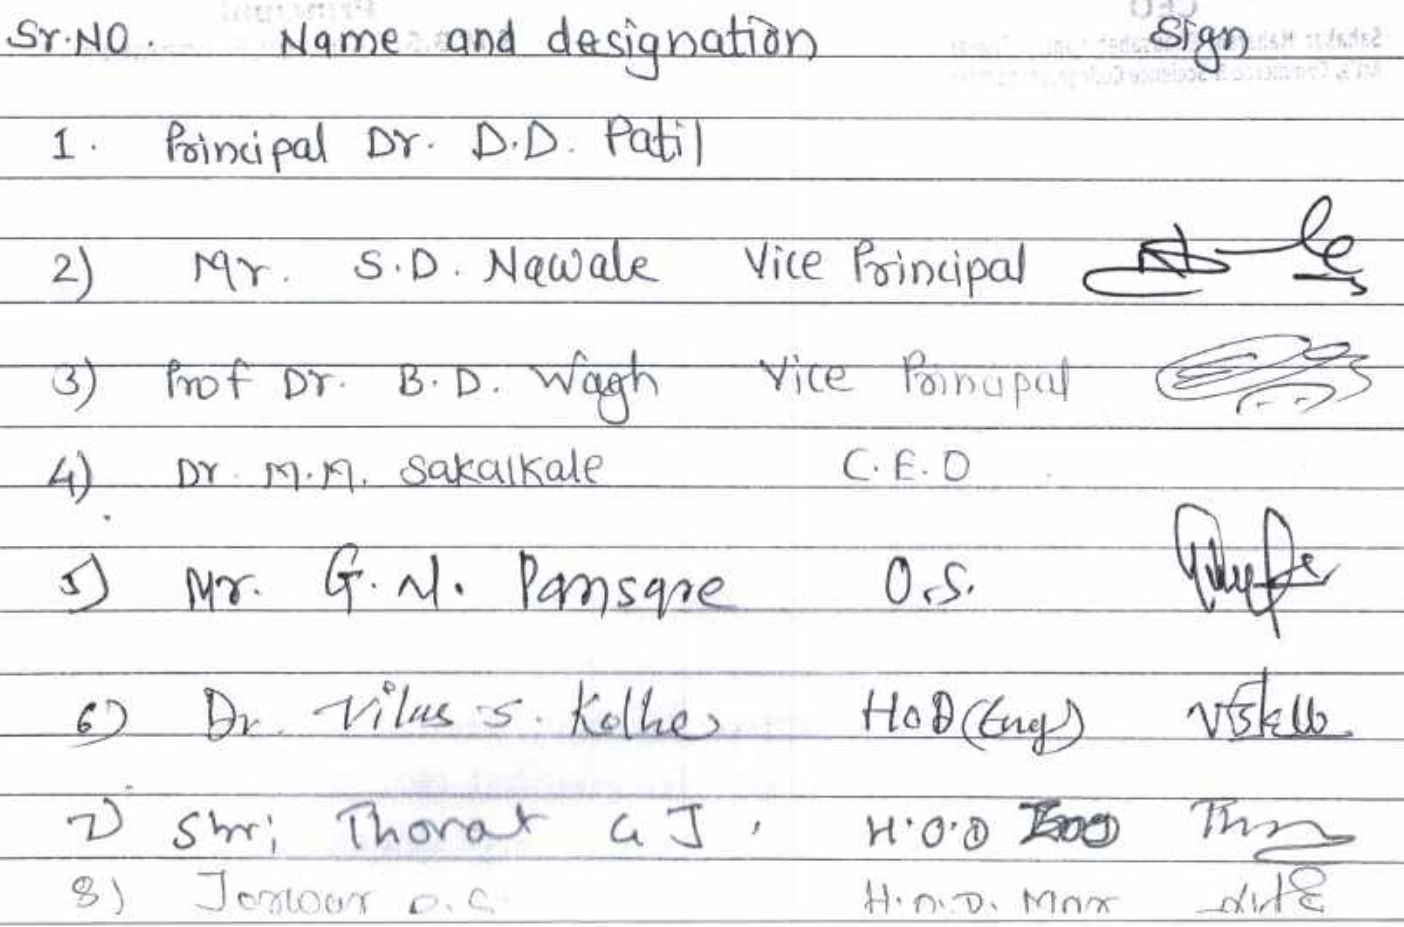 Sr.NO. Name and designation Sign
1. Principal Dr. D.D. Patil
2) Mr. S.D. Nawale Vice Principal
3) Prof Dr. B.D. Wagh Vice Principal
4) Dr. M.M. Sakalkale C.E.O
5) Mr. G.N. Pansare O.S.
6) Dr. Vilas S. Kolhe HOD (Eng) VSKolhe
7) Shri Thorat G J. H.O.D Zoo
8) H.O.D. Mar